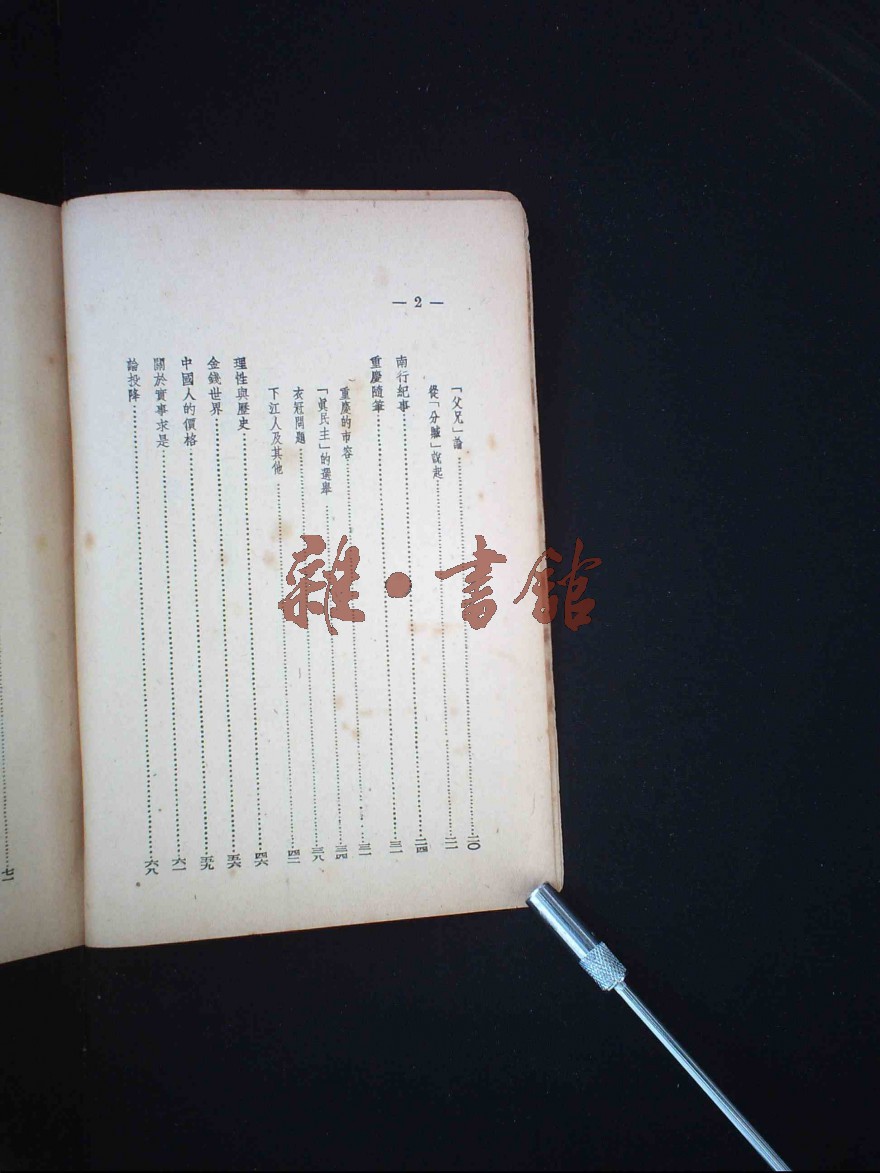 — 2 —
「父兄」論……二〇
從「分贓」說起……二二
南行紀事……二四
重慶隨筆……三一
重慶的市容……三一
「眞民主」的選舉……三四
衣冠問題……三八
下江人及其他……四二
理性與歷史……四六
金錢世界……五六
中國人的價格……五九
關於實事求是……六一
論投降……六八
七一
雜·書館